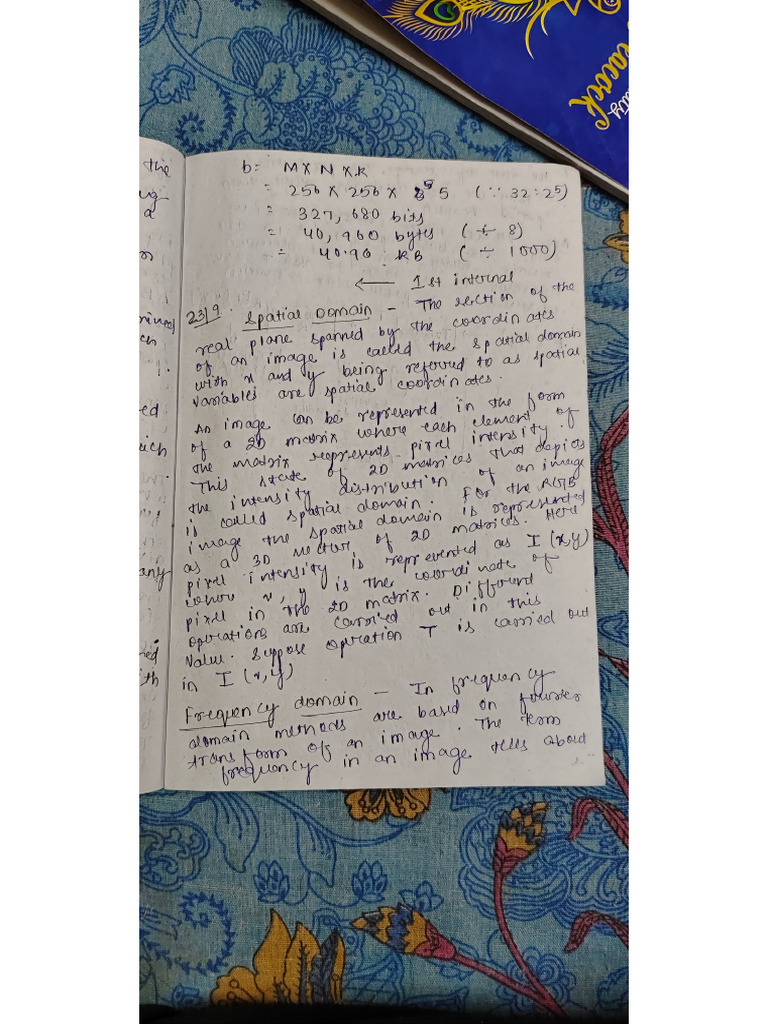 Peacock
the
a
b = M X N X K
= 256 X 256 X 5 (∵ 32 = 2⁵)
= 327,680 bits
= 40,960 bytes (÷ 8)
= 40.96 KB (÷ 1000)
← 1st internal
23/9. Spatial Domain - The section of the
real plane spanned by the coordinates
of an image is called the spatial domain
with x and y being referred to as spatial
variables are spatial coordinates.
An image can be represented in the form
of a 2D matrix where each element of
the matrix represents pixel intensity.
This state of 2D matrices that depicts
the intensity distribution of an image
is called spatial domain. For the RGB
image the spatial domain is represented
as a 3D vector of 2D matrices. Here
pixel intensity is represented as I (x,y)
where x, y is the coordinate of
pixel in the 2D matrix. Different
operations are carried out in this
value. Suppose operation T is carried out
in I (x,y)
Frequency domain - In frequency
domain methods are based on fourier
transform of an image. The term
frequency in an image tells about
any